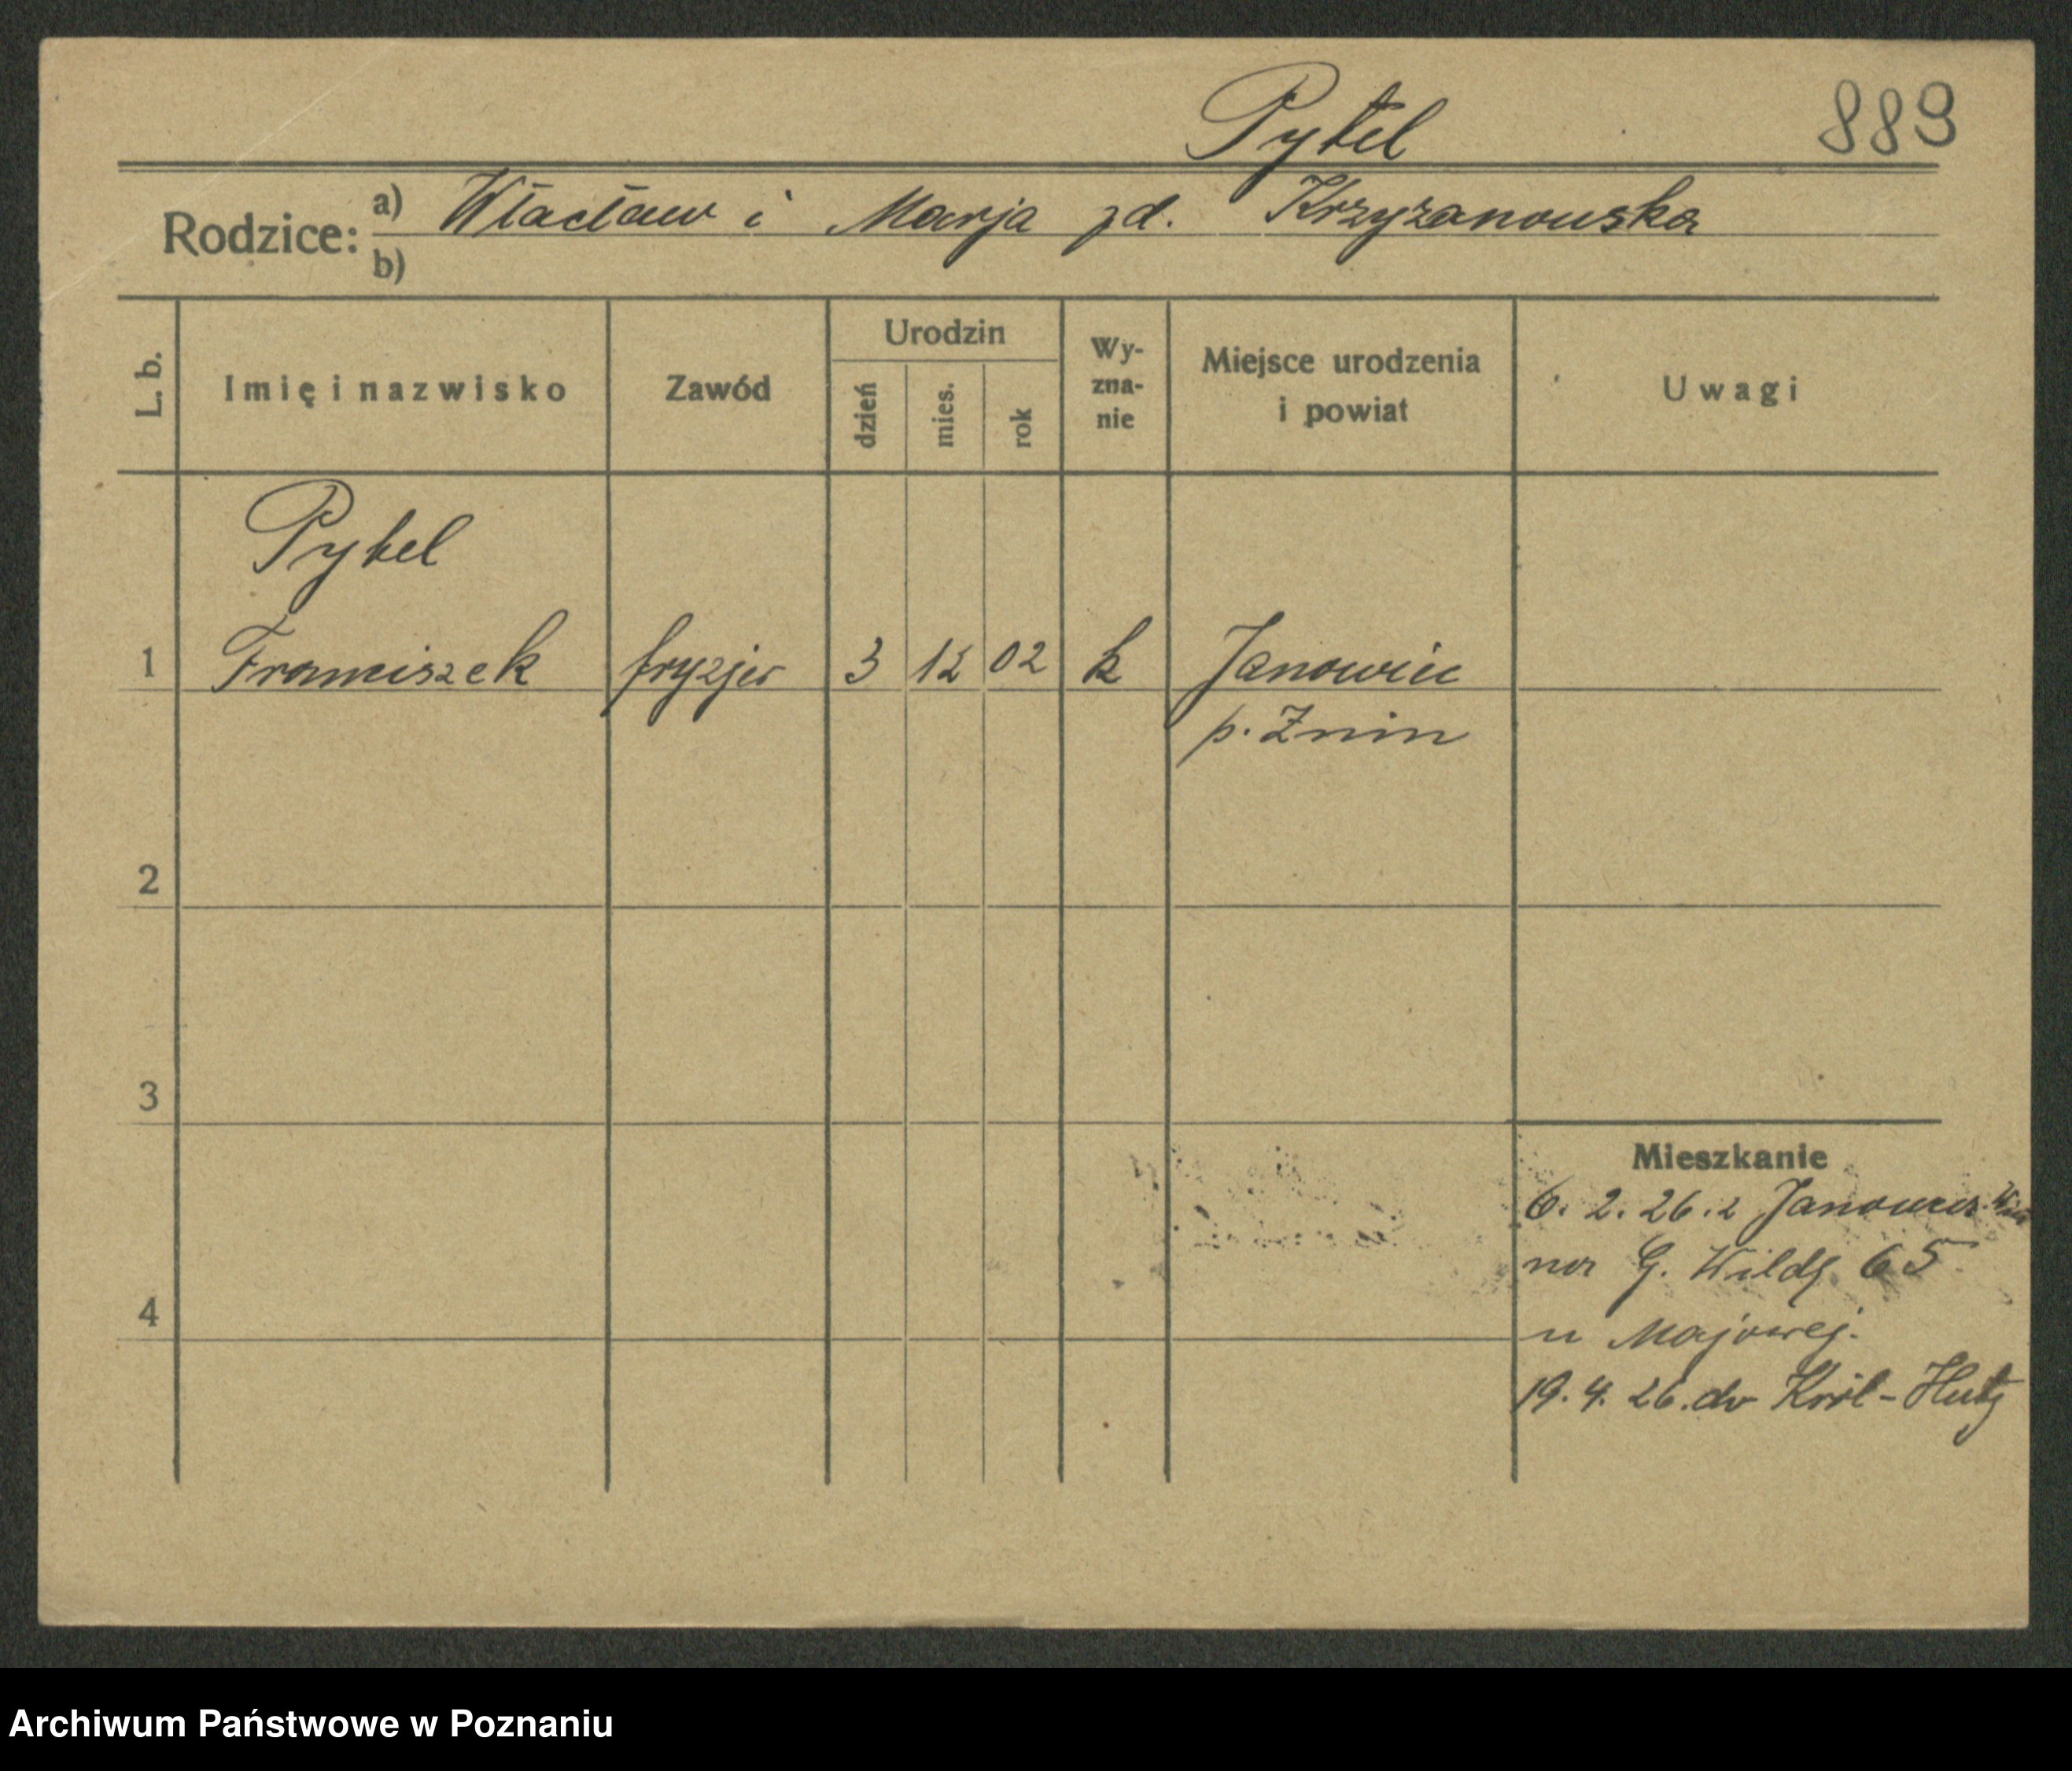 Pytel
889
Rodzice: a) Włacław i Marja zd. Krzyżanowska
b)
L. b.
Imię i nazwisko
Zawód
Urodzin
dzień
mies.
rok
Wy-
zna-
nie
Miejsce urodzenia
i powiat
Uwagi
Pytel
1 Franciszek fryzjer 3 12 02 k Janowiec
p. Żnin
2
3
4
Mieszkanie
6. 2. 26. z Janowca
na G. Wildę 65
u Majowej.
19. 4. 26. do Król-Hutę
Archiwum Państwowe w Poznaniu